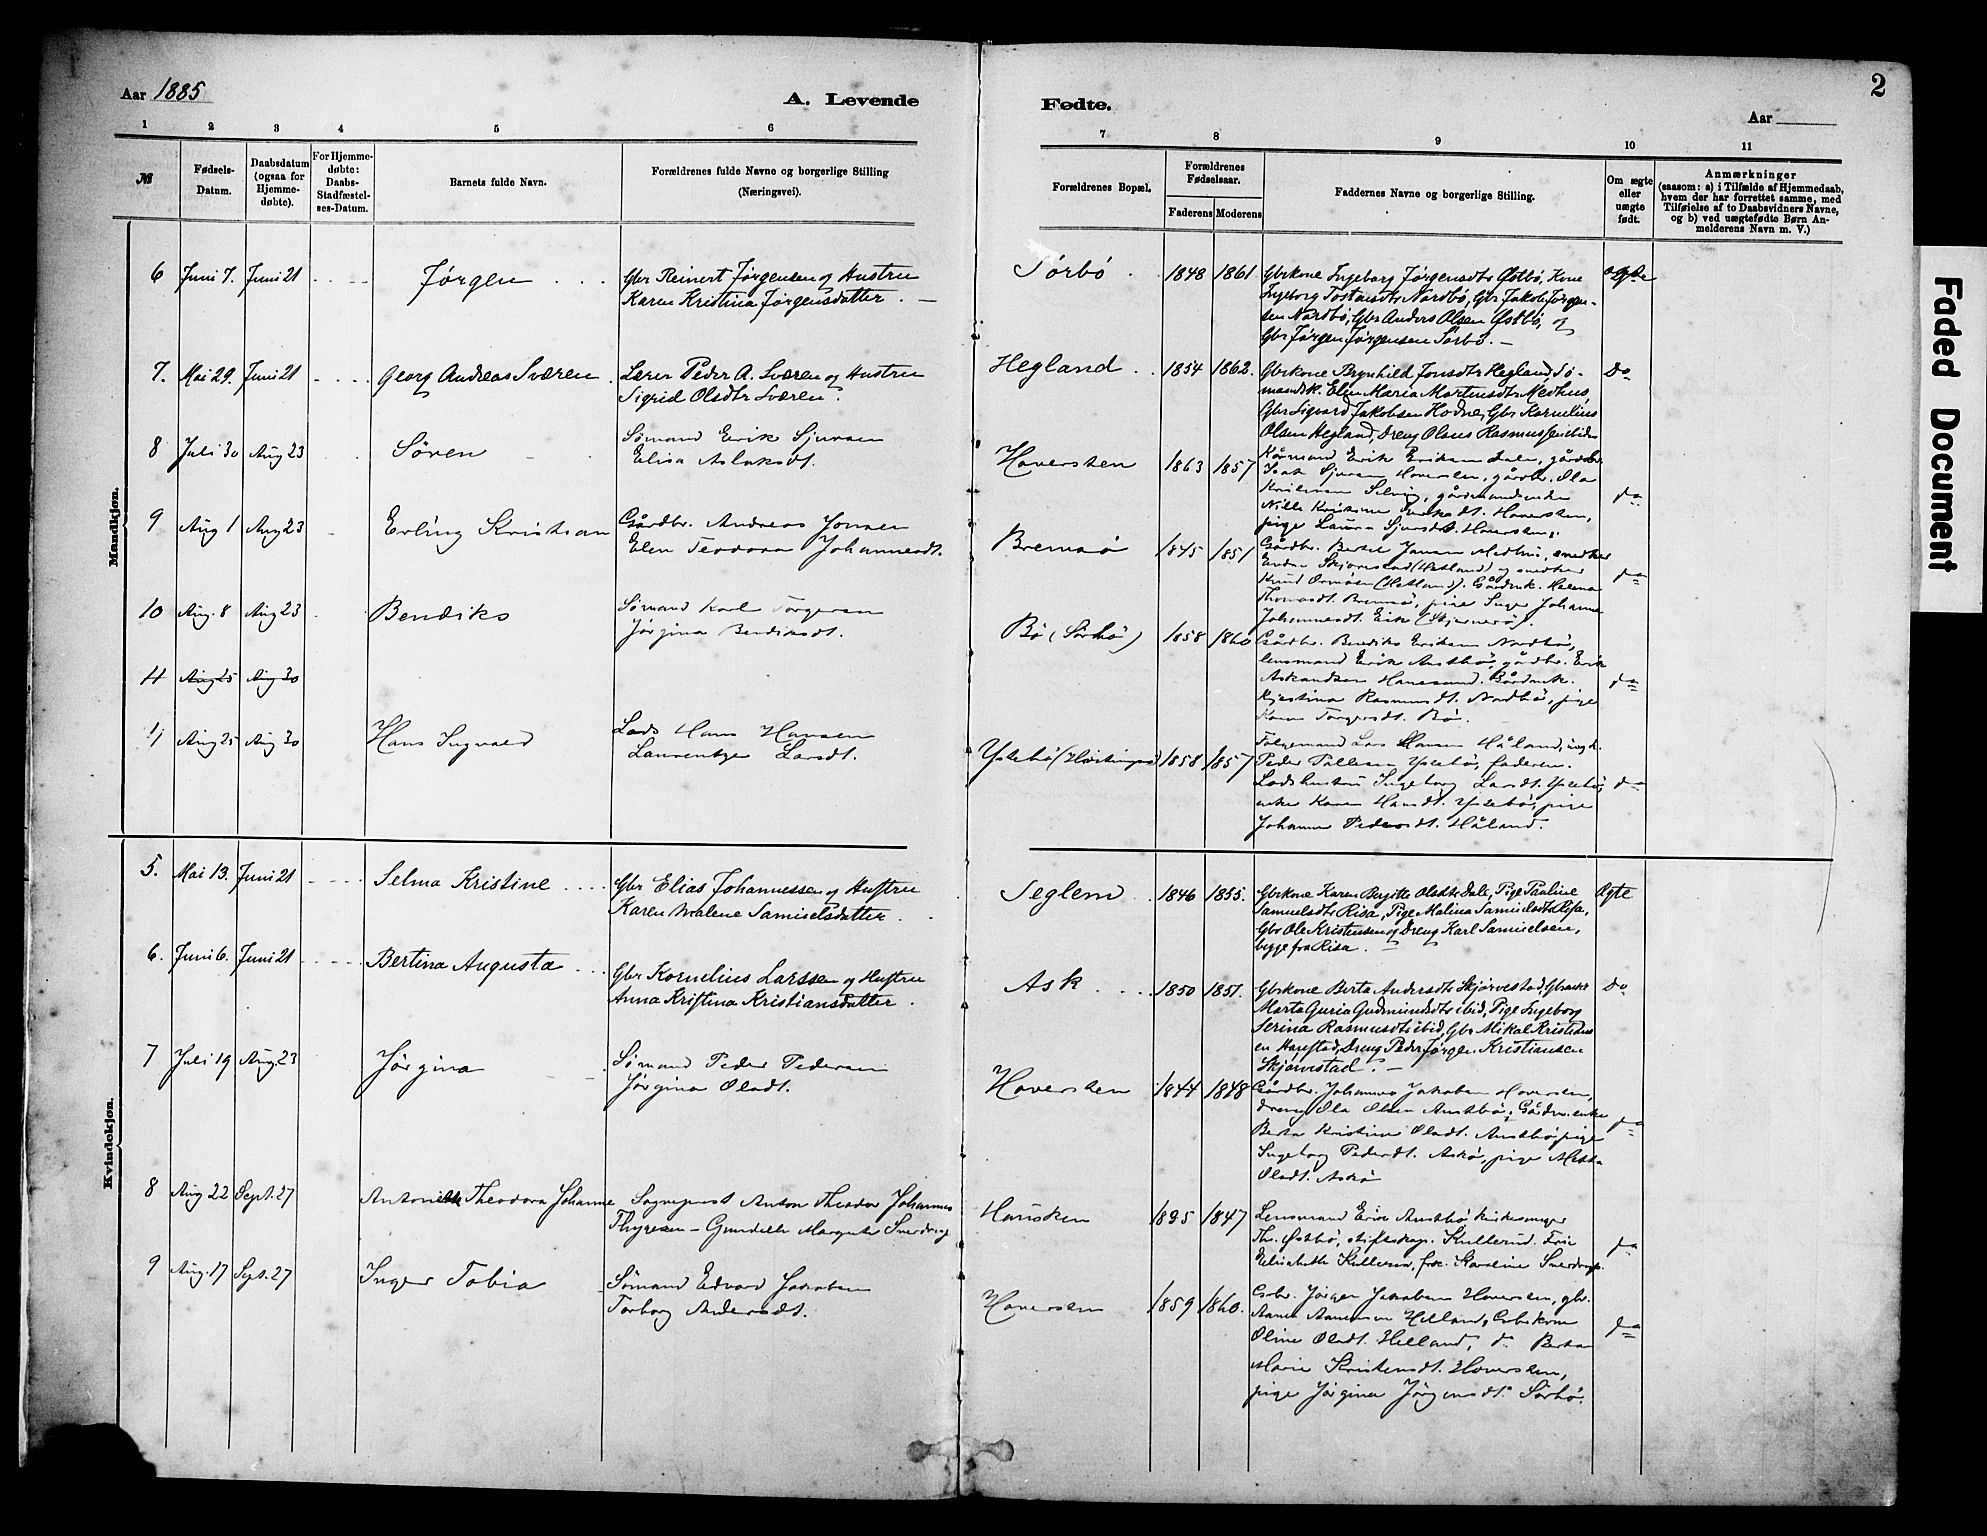 Aar 1885
A. Levende
Fødte.
2
Aar
1 2 3 4 5 6 7 8 9 10 11
№
Fødsels-
Datum.
Daabsdatum
(ogsaa for
Hjemme-
døbte).
For Hjemme-
døbte:
Daabs-
Stadfæstel-
ses-Datum.
Barnets fulde Navn.
Forældrenes fulde Navne og borgerlige Stilling
(Næringsvei).
Forældrenes Bopæl.
Forældrenes
Fødselsaar.
Faderens Moderens
Faddernes Navne og borgerlige Stilling.
Om ægte
eller
uægte
født.
Anmærkninger
(saasom: a) i Tilfælde af Hjemmedaab,
hvem der har forrettet samme, med
Tilføielse af to Daabsvidners Navne,
og b) ved uægtefødte Børn An-
melderens Navn m. V.)
Mandkjøn.
6 Juni 7. Juni 21 Jørgen
Gbr Reinert Jørgensen og Hustru
Karen Kristina Jørgensdatter.
Sørbø 1848 1861
Gbrkone Ingeborg Jørgensdtr Østbø, Kone
Ingeborg Tostensdtr Nordbø, Gbr Jakob Jørgen-
sen Nordbø, Gbr Anders Olsen Østbø, og
Gbr Jørgen Jørgensen Sørbø.
Ægte
7. Mai 29. Juni 21 Georg Andreas Sværen
Lærer Peder A. Sværen og Hustru
Sigrid Olsdtr Sværen.
Hegland 1854 1862.
Gbrkone Brynhild Jonsdtr Hegland, Sø-
mandsk. Elen Maria Martensdtr Medhus,
Gbr Sigvard Jakobsen Hodne, Gbr Kornelius
Olsen Hegland, Dreng Olaus Rasmussen ibiden
Do
8 Juli 30 Aug 23 Søren
Sømand Erik Sjursen
Elisa Aslaksdt.
Haversten 1863 1857
Erik Eriksen Dale, gårdbr.
Sjursen Haversten, gårdbr. Ola
Kristensen Selvig, gårdmandsenke
Haversten,
pige Laura Sjursdt. Haversten.
do
9 Aug 1 Aug 23 Erling Kristian
Gårdbr. Andreas Jonsen
Elen Teodora Johannesdt.
Bremsø 1845 1851
Gårdbr. Bertel Jansen Medhus, snedker
Endre Skjørvestad (Hetland) og snedker
Knud (Hetland). Gårdmk. Helena
Thomasdt. Bremsø, pige Inge Johanne
Johannesdt. Eik (Stjernerø).
do
10 Aug. 8 Aug 23 Bendiks
Sømand Karl Torgersen
Jørgina Bendiksdt.
Bø (Sørbø) 1858 1860
Gårdbr. Bendiks Eriksen Nordbø,
lensmand Erik Austbø, gårdbr. Erik
Gårdmk.
Kjerstina Rasmusdt. Nordbø, pige
Karen Torgersdt. Bø.
do
11 Aug 25 Aug 30
11 Aug 25 Aug 30 Hans Ingvald
Lods Hans Hansen
Laurentze Larsdt.
Ystebø 1858 1857
Følgemand Lars Hansen Håland, ungk.
Peder Pallesen Ystebø, faderen.
Lodshustru Ingeborg Larsdt. Ystebø,
enke Karen Hansdt. Ystebø, pige
Johanne Pedersdt. Håland.
do
Kvindekjøn.
5. Mai 13. Juni 21 Selma Kristine
Gbr Elias Johannessen og Hustru
Karen Malene Samuelsdatter.
Seglem 1846 1855.
Gbrkone Karen Bergitte Olsdtr Dale, Pige Pauline
Samuelsdtr Risa, Pige Malina Samuelsdtr Risa,
Gbr Ole Kristensen og Dreng Karl Samuelsen,
begge fra Risa.
Ægte
6. Juni 6. Juni 21 Bertina Augusta
Gbr Kornelius Larssen og Hustru
Anna Kristina Kristiansdatter.
Ask 1850 1851.
Gbrkone Berta Andersdtr Skjørvestad, Gbrenke
Marta Guria Gudmundsdtr ibid, Pige Ingeborg
Serina Rasmusdtr ibid, Gbr Mikal Kristians
en Harestad, Dreng Peder Jørgen Kristiansen
Skjørvestad.
Do
7 Juli 19 Aug. 23 Jørgina
Sømand Peder Pedersen
Jørgina Olsdt.
Haversten 1844 1848
Gårdbr. Johannes Jakobsen Haversten,
dreng Ola Olsen Austbø, Gårdm.enke
Berta Kristine Olsdt. Austbø, pige
Ingeborg Pedersdt. Askø, pige Mette
Olsdt. Askø
do
8 Aug 22 Sept. 27 Antonette Theodora Johanne
Sogneprest Anton Theodor Johannes
Thyresen - Gunelle Margrete Sverdrup
Hausken 1835 1847
Lensmand Erik Austbø, kirkesanger
Th. Østbø, stiftskap. Kullerud. Frue
Elisabeth Kullerud, frøk. Karoline Sverdrup.
do
9 Aug. 17 Sept. 27 Inger Tobia
Sømand Edvard Jakobsen
Torborg Andersdt.
Haversten 1859 1860.
Gbr. Jørgen Jakobsen Haversten, gbr.
Aamund Helland, Gbrkone
Oline Olsdt. Helland, do Berta
Marie Kristensdt. Haversten,
pige Jørgine Jørgensdt. Sørbø.
do
Faded Document